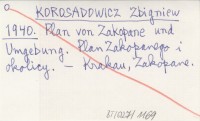 KOROSADOWICZ Zbigniew
1940. Plan von Zakopane und
Umgebung. Plan Zakopanego i
okolicy. – Krakau, Zakopane.